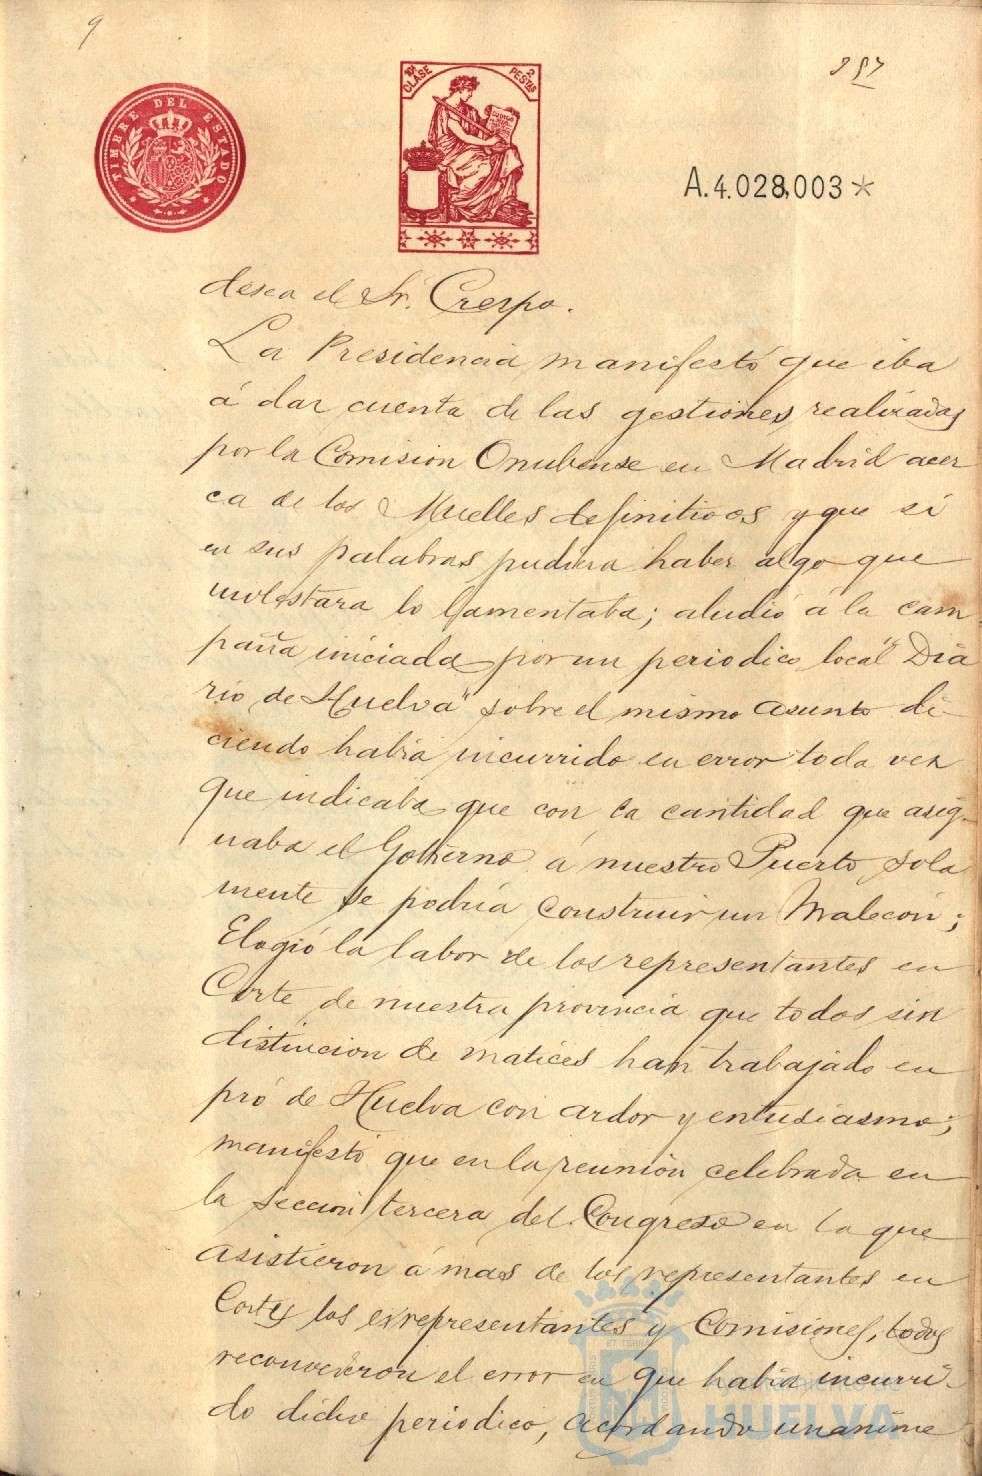 9
TIMBRE DEL ESTADO
10ª CLASE
2 PESTAS
A.4.028,003*
desea el Sr. Crespo.
La Presidencia manifestó que iba
á dar cuenta de las gestiones realizadas
por la Comision Onubense en Madrid acer
ca de los Muelles definitivos y que si
en sus palabras pudiera haber algo que
molestara lo lamentaba; aludió á la cam
paña iniciada por un periodico local "Dia
rio de Huelva" sobre el mismo asunto di-
ciendo habia incurrido en error toda vez
que indicaba que con la cantidad que asig-
naba el Gobierno á nuestro Puerto, sola
mente se podría construir un Malecon;
Elogió la labor de los representantes en
Corte de nuestra provincia que todos sin
distincion de matices han trabajado en
pró de Huelva con ardor y entusiasmo;
manifestó que en la reunión celebrada en
la seccion tercera del Congreso en la que
asistieron á mas de los representantes en
Cortes los exrepresentantes y Comisiones, todos
reconocieron el error en que habia incurri-
do dicho periodico, acordando unanime
Ayuntamiento de
HUELVA